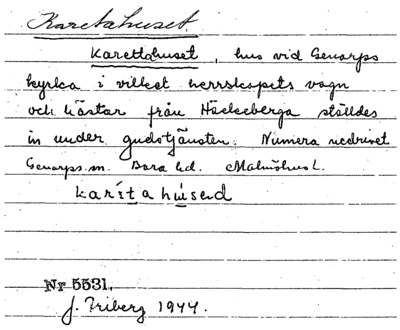 Karetahuset.
Karettahuset, hus vid Genarps
kyrka i vilket herrskapets vagn
och hästar från Häckeberga ställdes
in under gudstjänsten. Numera nedrivet
Genarps sn. Bara hd. Malmöhus l.
karítahúsəd
Nr 5531.
J. Friberg 1944.